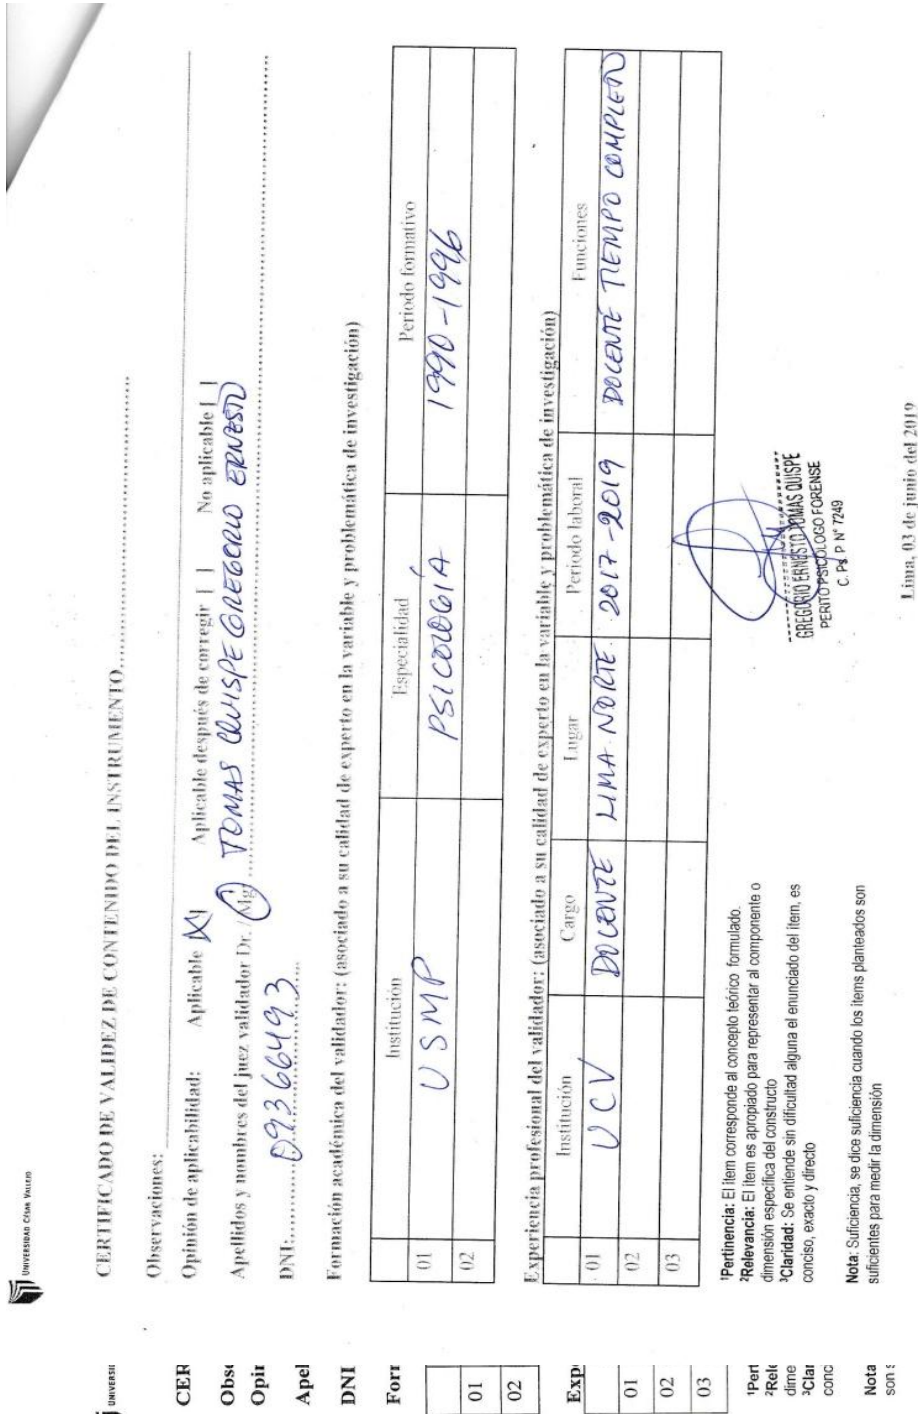 UNIVERSIDAD CÉSAR VALLEJO
CERTIFICADO DE VALIDEZ DE CONTENIDO DEL INSTRUMENTO........................
Observaciones:
Opinión de aplicabilidad: Aplicable [X] Aplicable después de corregir [ ] No aplicable [ ]
Apellidos y nombres del juez validador Dr. / Mg: TOMAS QUISPE GREGORIO ERNESTO
DNI: 09366493
Formación académica del validador: (asociado a su calidad de experto en la variable y problemática de investigación)
Institución Especialidad Periodo formativo
01 USMP PSICOLOGÍA 1990-1996
02
Experiencia profesional del validador: (asociado a su calidad de experto en la variable y problemática de investigación)
Institución Cargo Lugar Periodo laboral Funciones
01 UCV DOCENTE LIMA NORTE 2017-2019 DOCENTE TIEMPO COMPLETO
02
03
¹Pertinencia: El ítem corresponde al concepto teórico formulado.
²Relevancia: El ítem es apropiado para representar al componente o
dimensión específica del constructo
³Claridad: Se entiende sin dificultad alguna el enunciado del ítem, es
conciso, exacto y directo
Nota: Suficiencia, se dice suficiencia cuando los ítems planteados son
suficientes para medir la dimensión
GREGORIO ERNESTO TOMAS QUISPE
PERITO PSICÓLOGO FORENSE
C. Ps. P N° 7249
Lima, 03 de junio del 2019
UNIVERSI
CER
Obse
Opin
Apel
DNI
Forr
01
02
Exp
01
02
03
¹Pert
²Rele
dime
³Clar
conc
Nota
son s